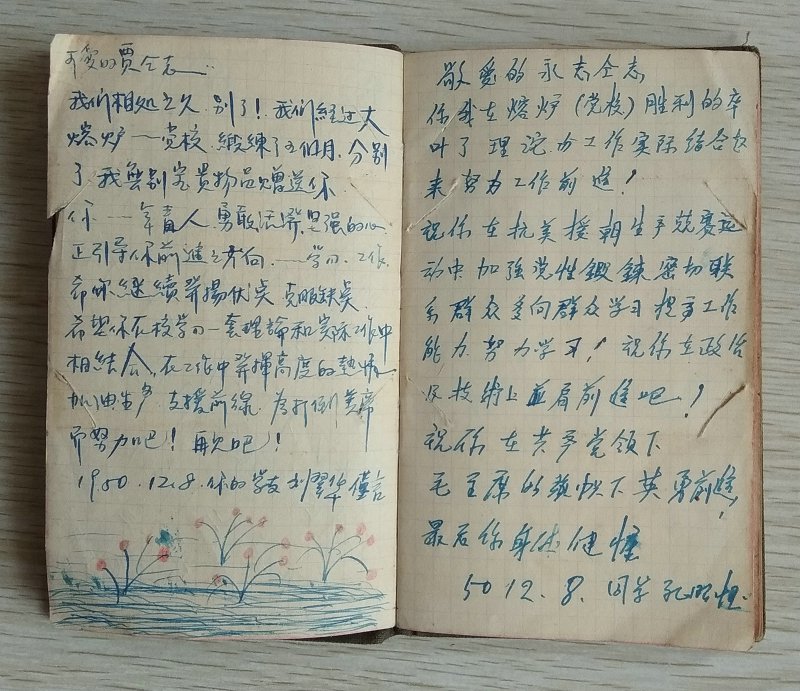 可爱的贾仝志
我们相处之久 别了！我们经过大
熔炉——党校 锻練了五个月，分别
了 我無别宝貴物品赠送你
你——年青人，勇敢活潑 坚强的心
正引导你前進之方向——学习、工作
希你継續発揚优点 克服缺点
希望你在校学习一套理論和实际工作中
相结合，在工作中発揮高度的熱情
加油生产 支援前線 為打倒美帝
而努力吧！再见吧！
1950.12.8.你的学友 刘翠华 僅言
敬爱的永志仝志
你我在熔炉（党校）胜利的卒
叶了 理论为工作实际结合起
来 努力工作前進！
祝你在抗美援朝生产竞赛运
动中加强党性鍛鍊 密切联
系群众多向群众学习 提高工作
能力 努力学习！祝你在政治
及技術上並肩前進吧！
祝你在共产党领下
毛主席的旗帜下英勇前進！
最后你身体健
50 12. 8. 同学